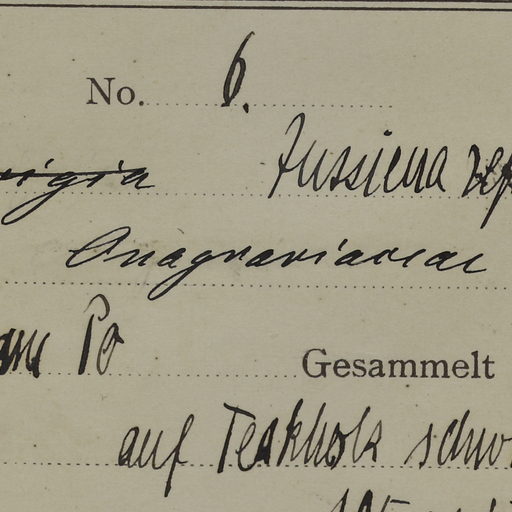 No. 6.
Jussiena rep
Onagrariaceae
Po Gesammelt
auf Teakholz schwi